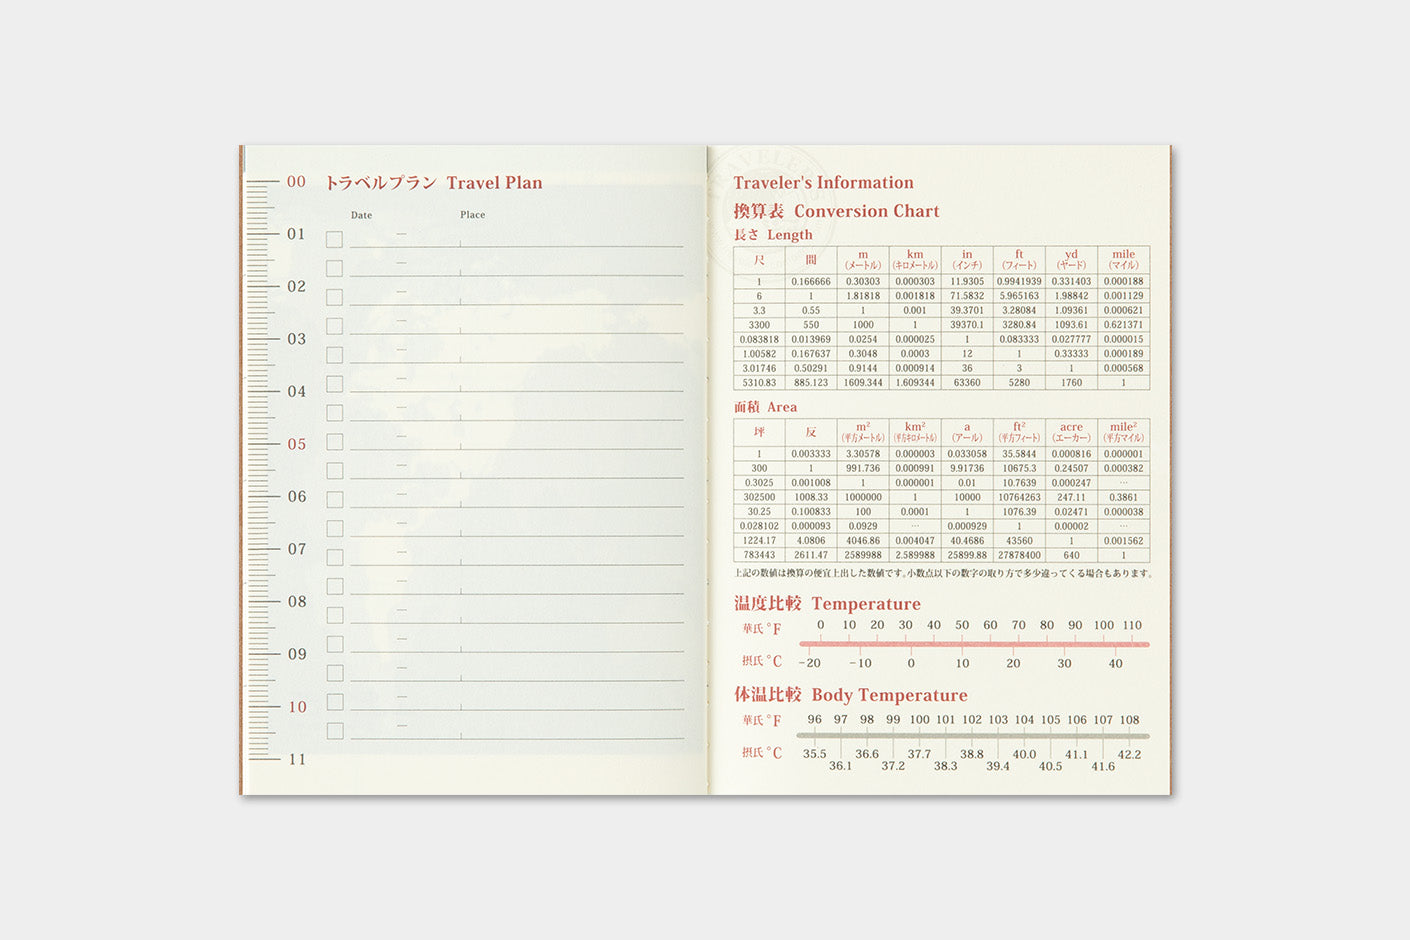 00
トラベルプラン Travel Plan
Date Place
01
02
03
04
05
06
07
08
09
10
11
TRAVELER'S
Traveler's Information
換算表 Conversion Chart
長さ Length
尺 間 m km in ft yd mile
(メートル) (キロメートル) (インチ) (フィート) (ヤード) (マイル)
1 0.166666 0.30303 0.000303 11.9305 0.9941939 0.331403 0.000188
6 1 1.81818 0.001818 71.5832 5.965163 1.98842 0.001129
3.3 0.55 1 0.001 39.3701 3.28084 1.09361 0.000621
3300 550 1000 1 39370.1 3280.84 1093.61 0.621371
0.083818 0.013969 0.0254 0.000025 1 0.083333 0.027777 0.000015
1.00582 0.167637 0.3048 0.0003 12 1 0.33333 0.000189
3.01746 0.50291 0.9144 0.000914 36 3 1 0.000568
5310.83 885.123 1609.344 1.609344 63360 5280 1760 1
面積 Area
坪 反 m² km² a ft² acre mile²
(平方メートル) (平方キロメートル) (アール) (平方フィート) (エーカー) (平方マイル)
1 0.003333 3.30578 0.000003 0.033058 35.5844 0.000816 0.000001
300 1 991.736 0.000991 9.91736 10675.3 0.24507 0.000382
0.3025 0.001008 1 0.000001 0.01 10.7639 0.000247 …
302500 1008.33 1000000 1 10000 10764263 247.11 0.3861
30.25 0.100833 100 0.0001 1 1076.39 0.02471 0.000038
0.028102 0.000093 0.0929 … 0.000929 1 0.00002 …
1224.17 4.0806 4046.86 0.004047 40.4686 43560 1 0.001562
783443 2611.47 2589988 2.589988 25899.88 27878400 640 1
上記の数値は換算の便宜上出した数値です。小数点以下の数字の取り方で多少違ってくる場合もあります。
温度比較 Temperature
華氏°F 0 10 20 30 40 50 60 70 80 90 100 110
摂氏°C −20 −10 0 10 20 30 40
体温比較 Body Temperature
華氏°F 96 97 98 99 100 101 102 103 104 105 106 107 108
摂氏°C 35.5 36.6 37.7 38.8 40.0 41.1 42.2
36.1 37.2 38.3 39.4 40.5 41.6